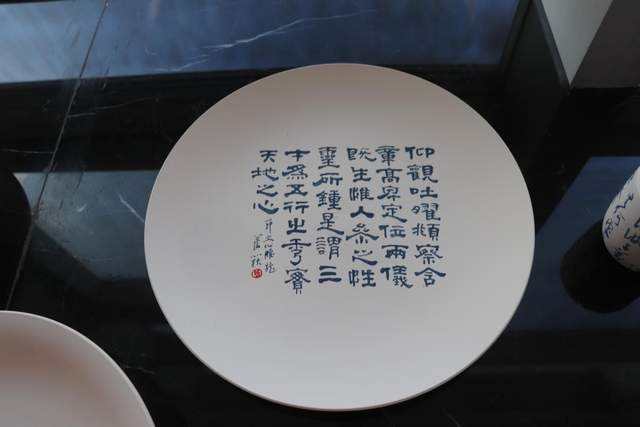 仰觀吐曜頫察含
章高卑定位兩儀
既生惟人參之性
靈所鍾是謂三
才爲五行之秀實
天地之心 文心雕龍